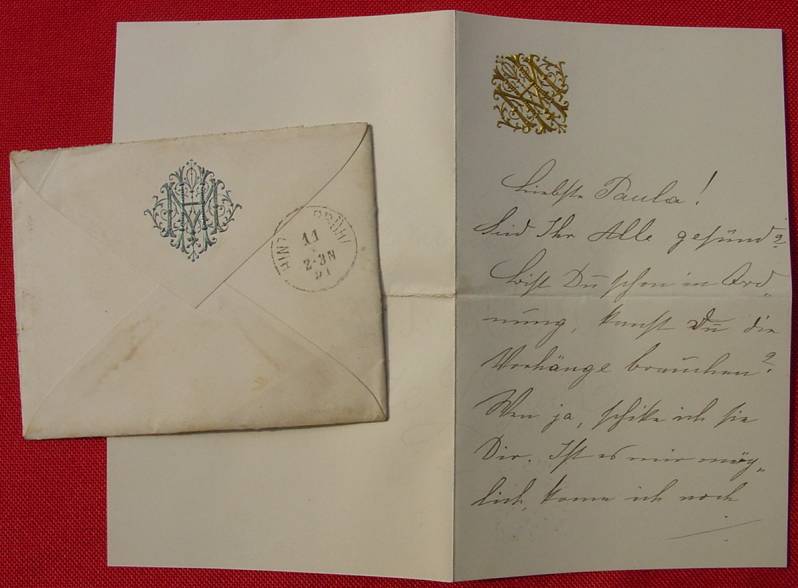 HM
11
2·3N
91
Liebste Paula!
Seid Ihr Alle gesund?
bist Du schon in Ord„
nung, kanst Du die
Vorhänge brauchen?
Wen ja, schike ich sie
Dir. Ist es mir mög„
lich, kome ich noch